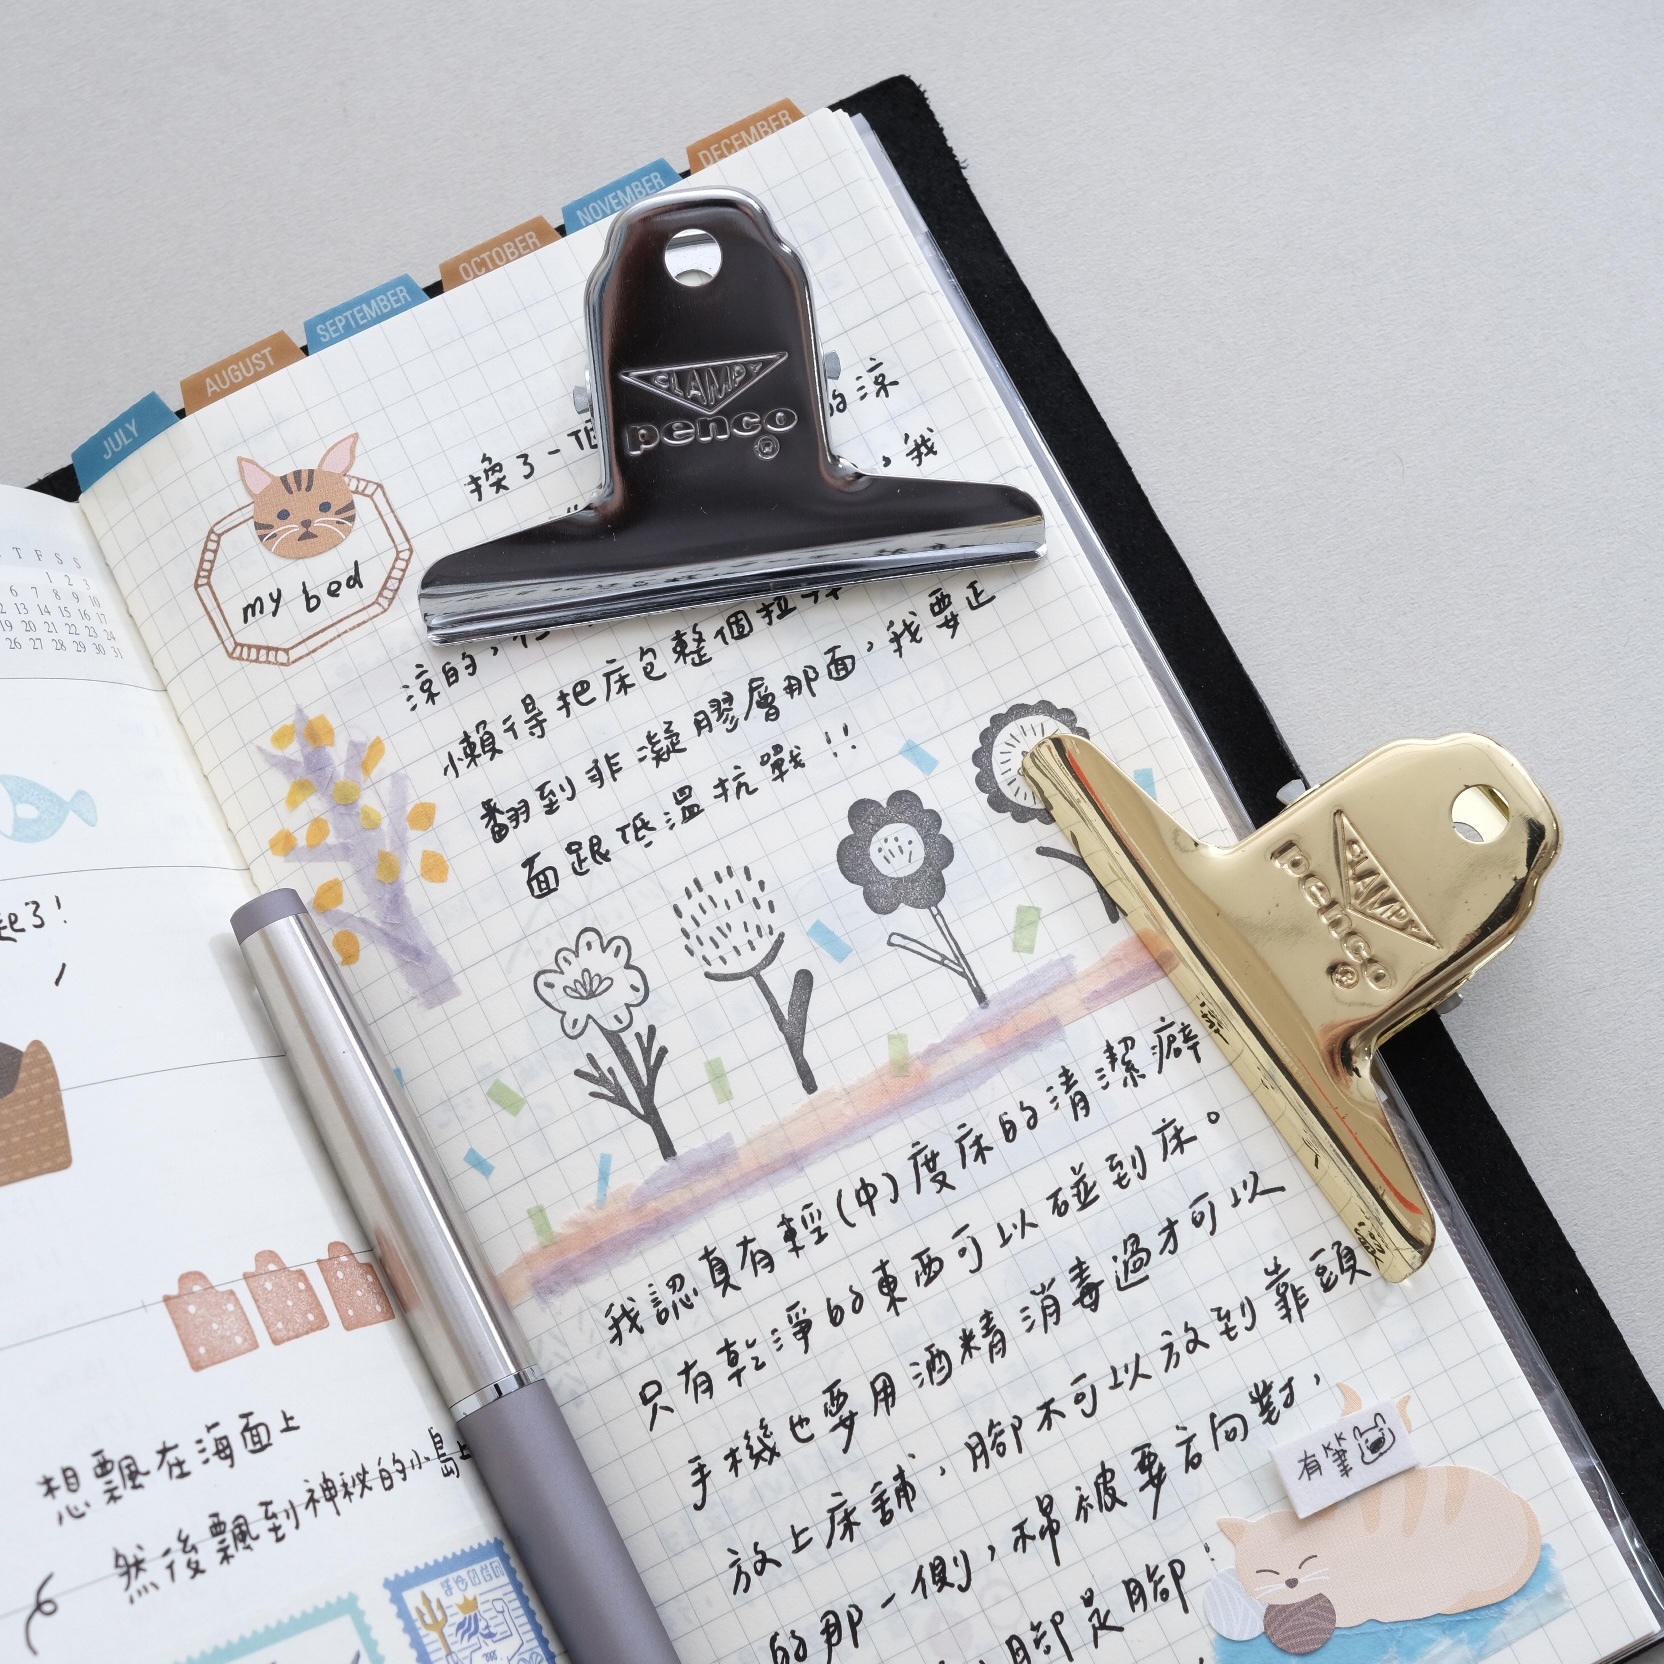 JULY
AUGUST
SEPTEMBER
OCTOBER
NOVEMBER
DECEMBER
T F S S
1 2 3
6 7 8 9 10
12 13 14 15 16 17
19 20 21 22 23 24
26 27 28 29 30 31
起了！
想飄在海面上
然後飄到神秘的小島上
my bed
CLAMPY
penco
換了一 的涼
，我
涼的，
懶得把床包整個拉
翻到非凝膠層那面，我要正
面跟低溫抗戰！！
CLAMPY
penco
我認真有輕（中）度床的清潔癖
只有乾淨的東西可以碰到床。
手機也要用酒精消毒過才可以
放上床舖，腳不可以放到靠頭
的那一側，棉被要方向對，
腳是腳！
有筆